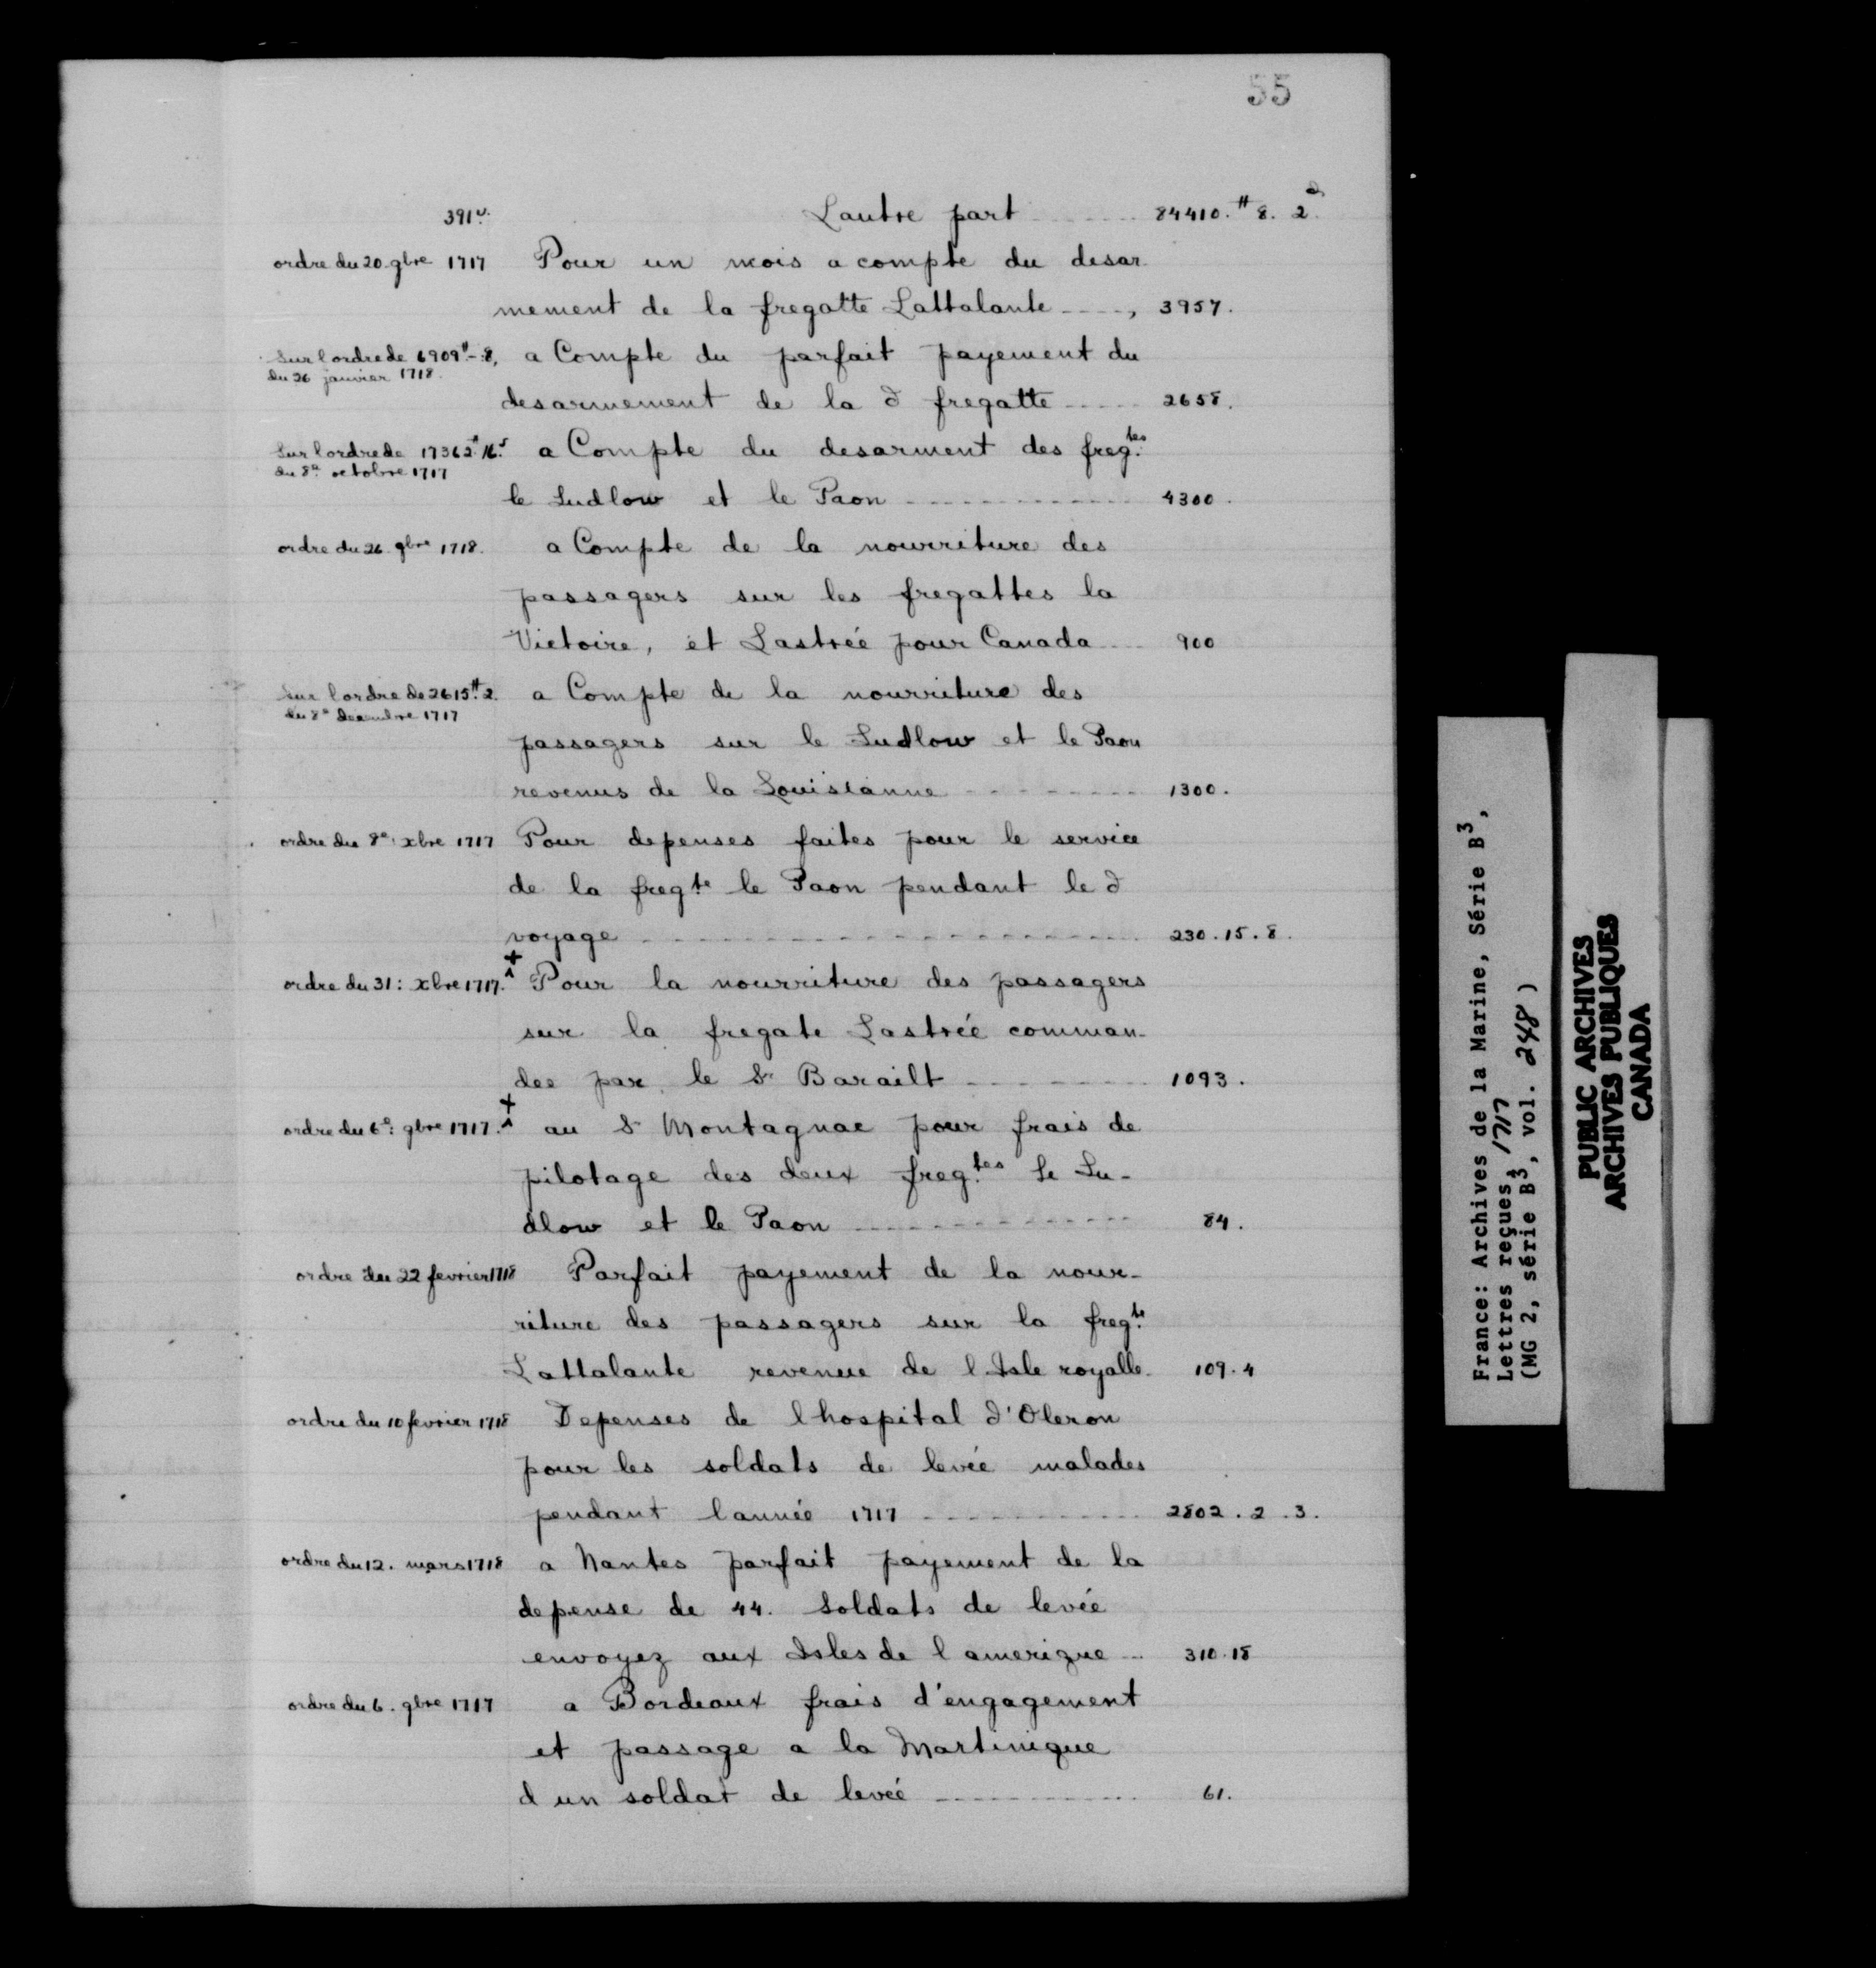 55
391v. Lautre part 84410.# 8. 2d
ordre du 20 9bre 1717 Pour un mois a compte du desar
mement de la fregatte Lattalante ----, 3957.
Sur l'ordre de 6909# - 8. a Compte du parfait payement du
du 26 janvier 1718.
desarmement de la d fregatte ---- 2658.
Sur l'ordre de 17362# 16s a Compte du desarment des freg.tes
du 8e octobre 1717
le Ludlow et le Paon ---- 4300.
ordre du 26 9bre 1718. a Compte de la nourriture des
passagers sur les fregattes la
Victoire, et Lastreé pour Canada ---- 900
Sur l'ordre de 2615# 2. a Compte de la nourriture des
du 8e decembre 1717
passagers sur le Ludlow et le Paon
revenus de la Louisianne ---- 1300.
ordre du 8e xbre 1717 Pour depenses faites pour le service
de la fregte le Paon pendant le d
voyage ---- 230.15.8.
ordre du 31: xbre 1717. + Pour la nourriture des passagers
sur la fregate Lastreé comman-
dee par le Sr Barailt ---- 1093.
ordre du 6e: 9bre 1717. + au Sr Montagnac pour frais de
pilotage des deux freg.tes Le Lu-
dlow et le Paon ---- 84.
ordre du 22 fevrier 1718 Parfait payement de la nour-
riture des passagers sur la freg.te
Lattalante revenue de l Isle royalle. 109.4
ordre du 10 fevrier 1718 Depenses de lhospital d'Oleron
pour les soldats de levée malades
pendant lanneé 1717 ---- 2802.2.3.
ordre du 12. mars 1718 a Nantes parfait payement de la
depense de 44. soldats de levée
envoyez aux Isles de l amerique -- 310.18
ordre du 6. 9bre 1717 a Bordeaux frais d'engagement
et passage a la Martinique
d un soldat de leveé ---- 61.
France: Archives de la Marine, Série B3,
Lettres reçues, 1717
(MG 2, série B3, vol. 248)
PUBLIC ARCHIVES
ARCHIVES PUBLIQUES
CANADA